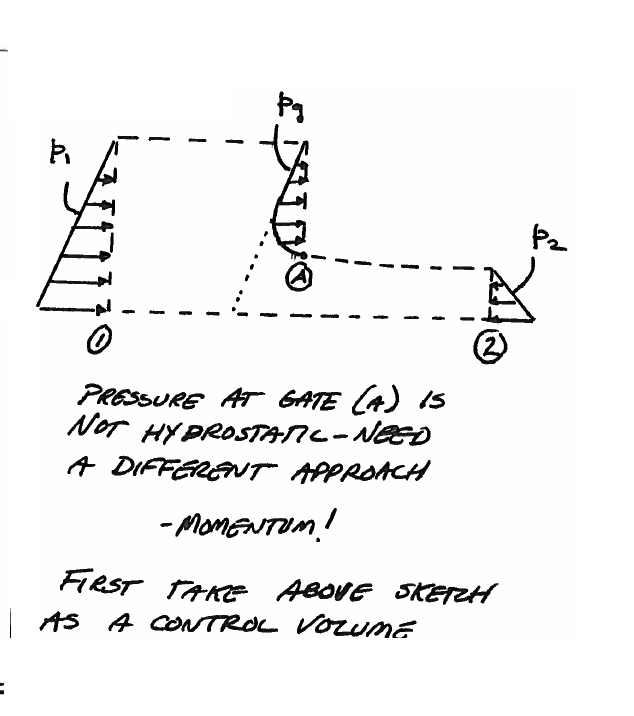 p₉
p₁
p₂
A
1
2
PRESSURE AT GATE (A) IS
NOT HYDROSTATIC - NEED
A DIFFERENT APPROACH
- MOMENTUM!
FIRST TAKE ABOVE SKETCH
AS A CONTROL VOLUME